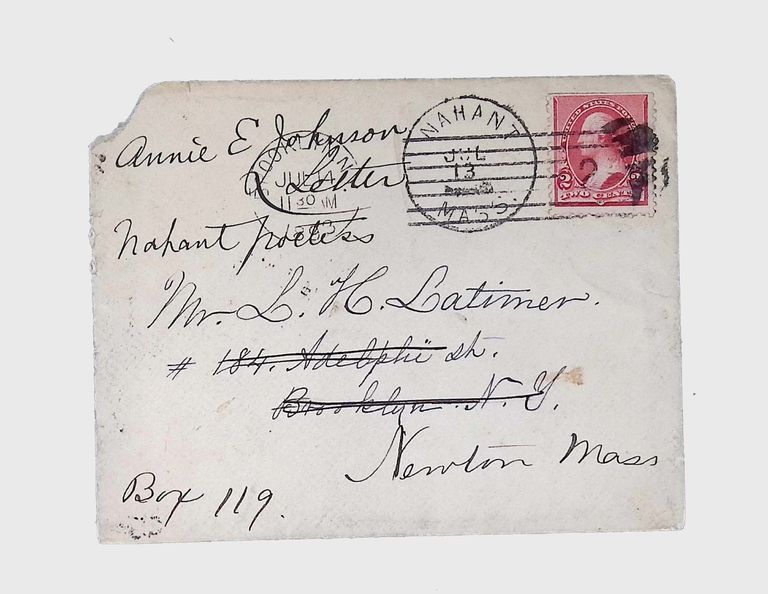 Annie E Johnson
Letter
Nahant Poetess
NAHANT
JUL
13
MASS.
JUL 14
11 30 AM
UNITED STATES POSTAGE
2
2
TWO CENTS
Mr. L. H. Latimer.
# 184. Adelphi St.
Brooklyn. N. Y.
Newton Mass
Box 119.